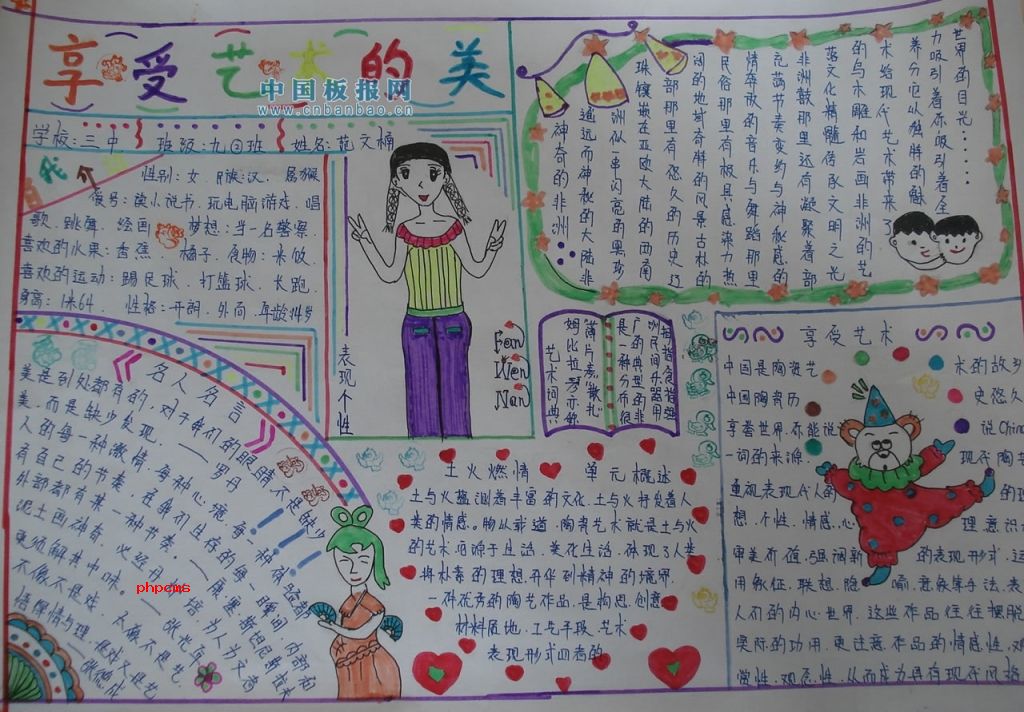 享受艺术的美
中国板报网
www.cnbanbao.cn
学校:三中 班级:九②班 姓名:范文楠
我
性别:女、民族:汉、属猴
爱号:读小说书、玩电脑游戏、唱
歌、跳舞、绘画 梦想:当一名警察、
喜欢的水果:香蕉、橘子、食物:米饭、
喜欢的运动:踢足球、打篮球、长跑、
身高:1米64、性格:开朗、外向、年龄14岁
表现个性
Fan
Wen
Nan
世界的目光……
力吸引着你吸引着全
养分它以独鲜的魅
术给现代艺术带来了
的乌木雕和岩画非洲的艺
落文化精髓传承文明之光
非洲鼓那里还有凝聚着部
充满节奏变幻与神秘感的
情奔放的音乐与舞蹈那里
民俗那里有极具感染力热
阔的地域奇鲜的风景古朴的
部那里有悠久的历史辽
珠镶嵌在亚欧大陆的西南
洲似一串闪亮的黑珍
遥远而神秘的大陆非
神奇的非洲
艺术词典
姆比拉琴亦称
薄片琴、散扎
是一种分布很
广的典型的非
洲民间乐器用
拇指食指弹
名人名言
美是到处都有的，对于我们的眼睛不是缺少
美，而是缺少发现。——罗丹
人的每一种激情，每种心境，每一种体验都
有自己的节奏，在我们生存的每一瞬间，内部和
外部都有某一种节奏。——康·塞·斯坦尼斯拉夫
泥土画神奇，必经丹
更须解其中味。——张光年
不像不是戏，太像不是艺，
悟得情与理，是戏又是艺
phpcms
土火燃情 单元概述
土与火蕴涵着丰富的文化,土与火抒发着人
类的情感。物以载道,陶瓷艺术就是土与火
的艺术,它源于生活、美化生活,体现了人类
将朴素的理想升华到精神的境界,
一件优秀的陶艺作品,是构思、创意、
材料质地、工艺手段、艺术
表现形式四者的
享受艺术
中国是陶瓷艺 术的故乡
中国陶瓷历 史悠久
享誉世界,你能说 说China
一词的来源 现代陶艺
重视表现代人的 的理
想、个性、情感、心 理意识
审美价值,强调新 的表现形式,运
用象征、联想、隐 喻、意象等手法,表
人们的内心世界,这些作品往往摆脱
实际的功用,更注意作品的情感性、观
赏性、观念性,从而成为具有现代风格